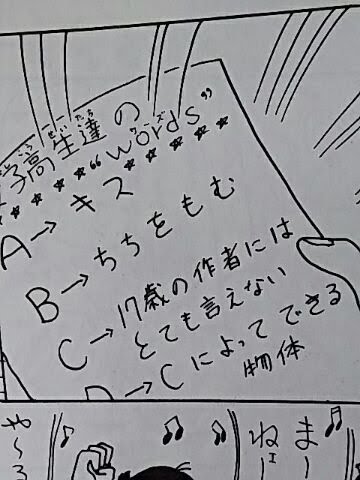 学高生達の
"words"
A→キス
B→ちちをもむ
C→17歳の作者には
とても言えない
D→Cによってできる
物体
まー
ねェー
や〜る